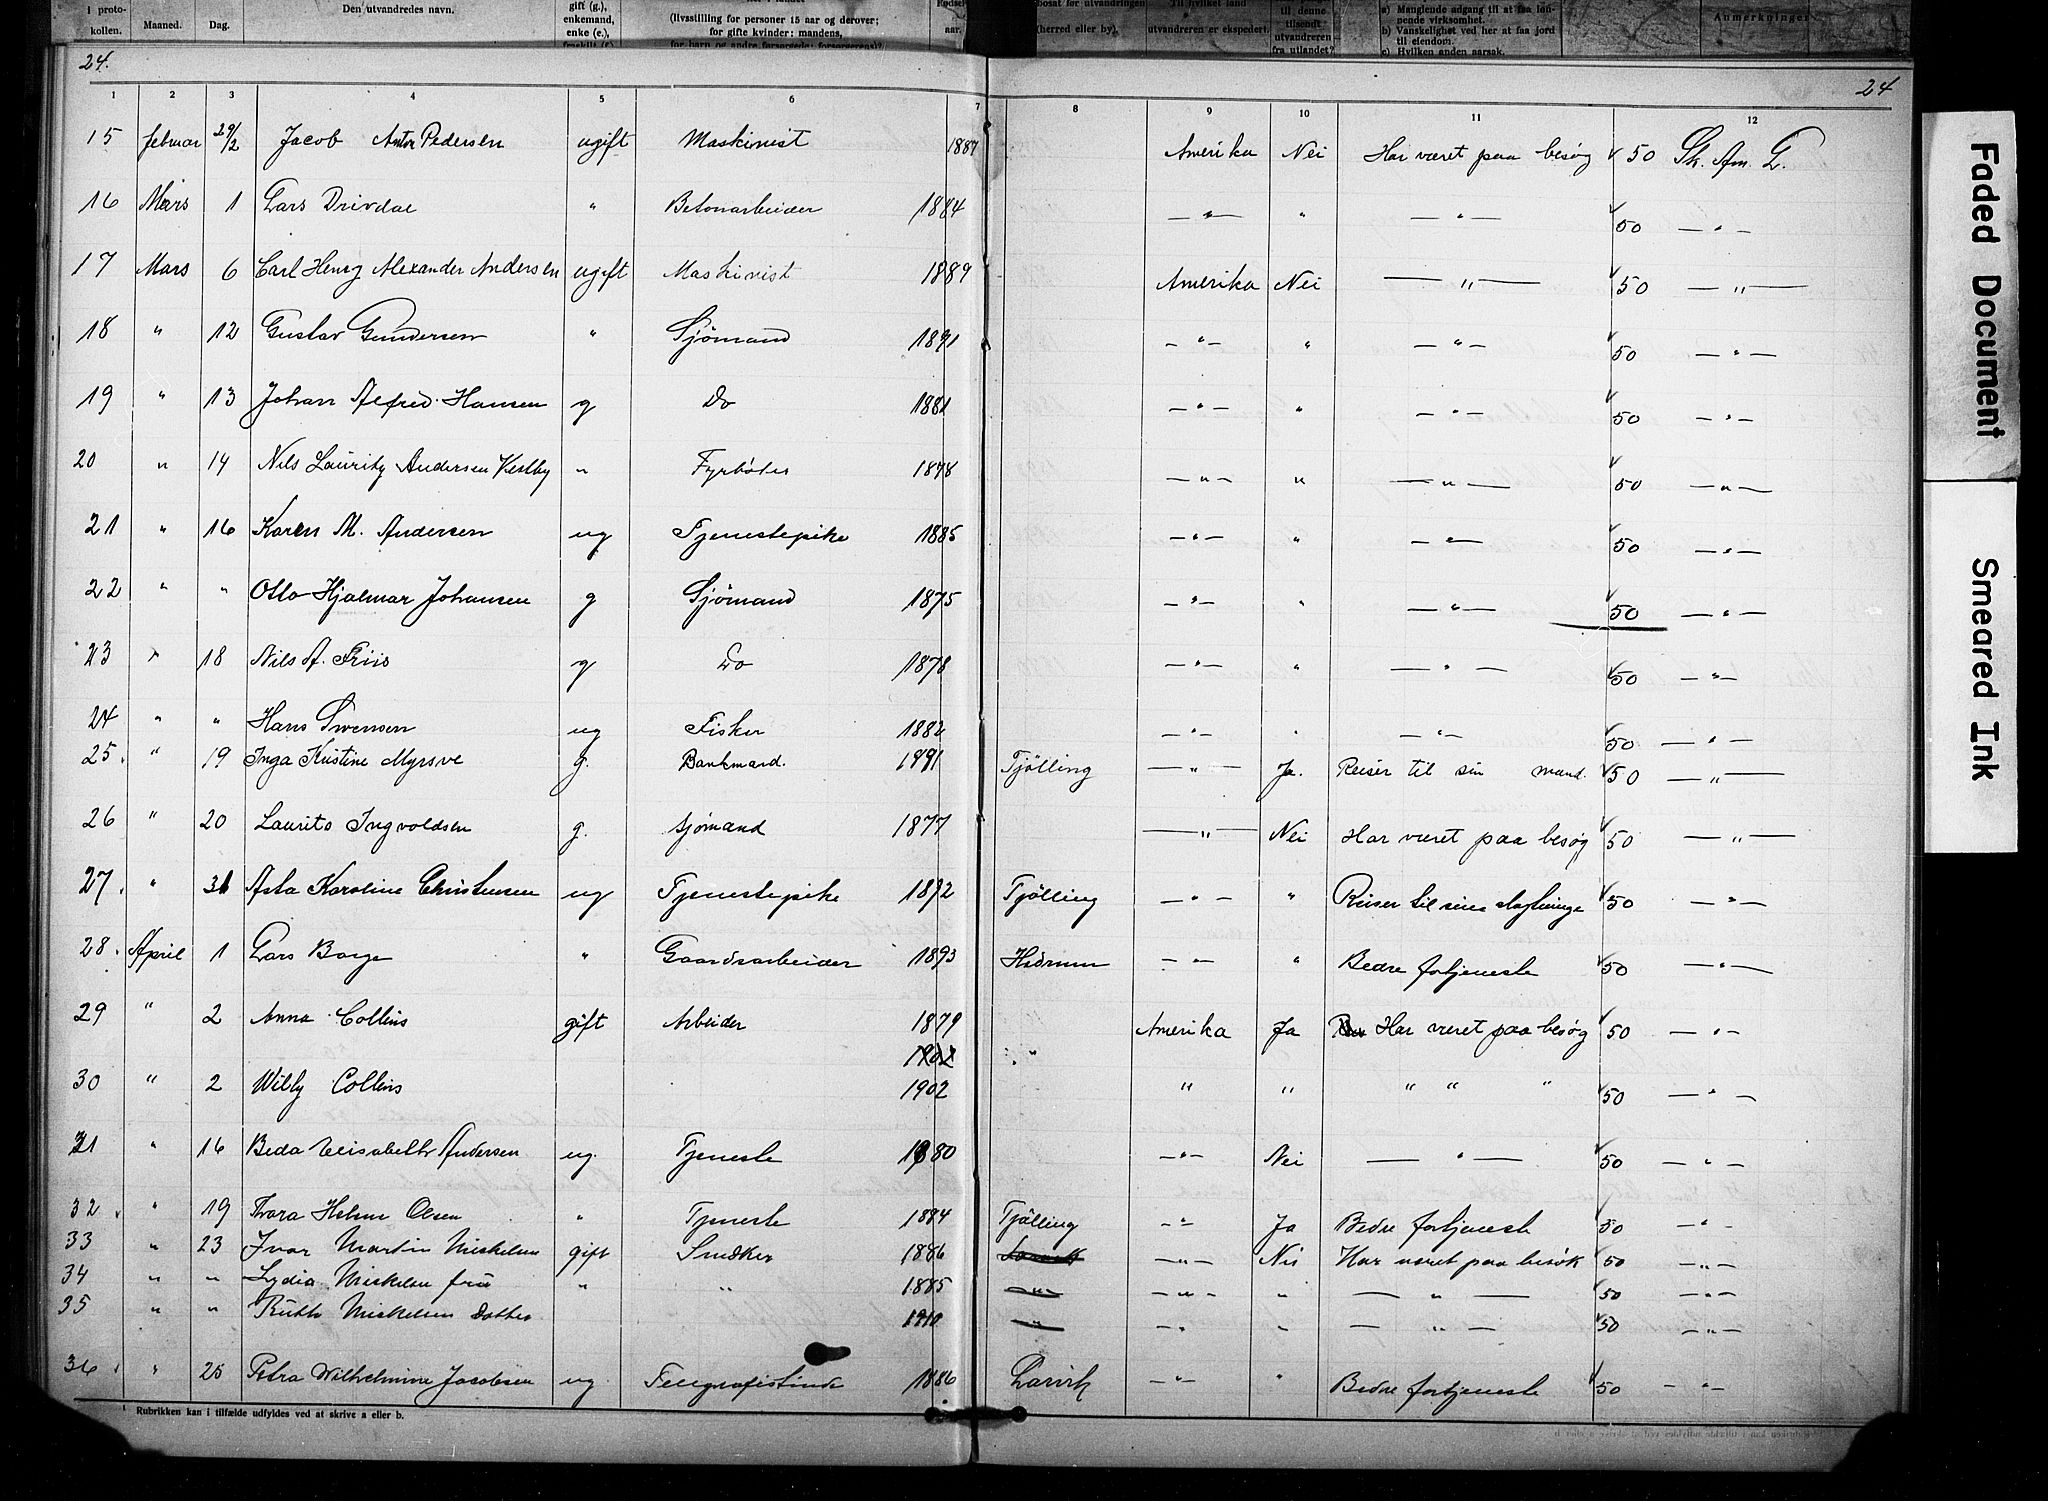 i proto-
kollen.
Maaned.
Dag.
Den utvandredes navn.
gift (g.),
enkemand,
enke (e.),
(livsstilling for personer 15 aar og derover;
for gifte kvinder: mandens,
aar.
bosat før utvandringen
(herred eller by).
Til hvilket land
utvandreren er ekspedert.
til denne
tilsendt
utvandreren
fra utlandet?
a) Manglende adgang til at faa løn-
nende virksomhet.
b) Vanskelighet ved her at faa jord
til eiendom.
c) Hvilken anden aarsak.
Anmerkninger
24. 24
1 2 3 4 5 6 7 8 9 10 11 12
15 februar 29/2 Jacob Anton Pedersen ugift Maskinist 1887 Amerika Nei Har været paa besøg √ 50 Sk. Am. L.
16 Mars 1 Lars Drivdal " Betonarbeider 1884 — " — " — " — √ 50 — " —
17 Mars 6 Carl Henry Alexander Andersen ugift Maskinist 1889 Amerika Nei — " — √ 50 — " —
18 " 12 Gustav Gundersen " Sjømand 1891 — " — " — " — √ 50 — " —
19 " 13 Johan Alfred Hansen g Do 1881 — " — " — " — √ 50 — " —
20 " 14 Nils Lauritz Andersen Vestby " Fyrbøter 1878 — " — " — " — √ 50 — " —
21 " 16 Karen M. Andersen ug Tjenestepike 1885 — " — " — " — √ 50 — " —
22 " " Otto Hjalmar Johansen g Sjømand 1875 — " — " — " — √ 50 — " —
23 " 18 Nils A. Friis g Do 1878 — " — " — " — √ 50 — " —
24 " " Hans Svensen ug Fisker 1882 — " — " — " — √ 50 — " —
25. " 19 Inga Kristine Myrsve g. Bankmand. 1891 Tjölling — " — Ja. Reiser til sin mand. √ 50 — " —
26 " 20 Laurits Ingvoldsen g. sjømand 1877 — " — Nei Har været paa besøg √ 50 — " —
27. " 31 Asta Karoline Christensen ug Tjenestepike 1892 Tjölling — " — " Reiser til sine slegtninge √ 50 — " —
28. April 1 Lars Borge " Gaardsarbeider 1893 Hedrum — " — " Bedre fortjeneste √ 50 — " —
29 " 2 Anna Collins gift Arbeider 1879 Amerika Ja Har været paa besøg √ 50 — " —
1902 "
30 " 2 Willy Collins 1902 " " " " " √ 50 — " —
31 " 16 Beda Elisabeth Andersen ug. Tjeneste 1880 — " — Nei — " — √ 50 — " —
32. " 19 Thora Helene Olsen " Tjeneste 1894 Tjölling — " — Ja Bedre fortjeneste √ 50 — " —
33 " 23 Ivar Martin Mickelsen gift Snedker 1886 Larvik — " — Nei Har været paa besøk √ 50 — " —
34 " " Lydia Mickelsen fru " " 1885 — " — — " — " — " — √ 50 — " —
35 " " Ruth Mickelsen Datter 1910 — " — — " — " — " — √ 50 — " —
36. " 25 Petra Wilhelmine Jacobsen ug Telegrafistinde 1886 Larvik — " — " Bedre fortjeneste √ 50 — " —
¹ Rubrikken kan i tilfælde udfyldes ved at skrive a eller b.
Faded Document
Smeared Ink